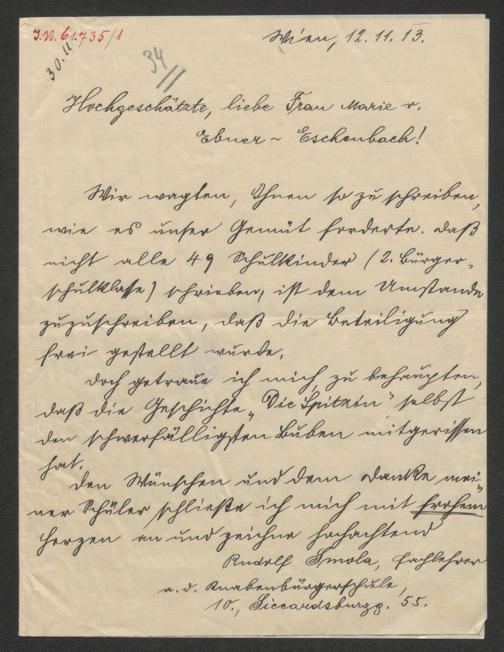 J.N. 61.735/1
30.11
34/1
Wien, 12.11.13.
Hochgeschätzte, liebe Frau Marie v.
Ebner-Eschenbach!
Wir wagten, Ihnen so zu schreiben,
wie es unser Gemüt forderte. Daß
nicht alle 49 Schulkinder (2. Bürger-
schulklasse) schrieben, ist dem Umstande
zuzuschreiben, daß die Beteiligung
frei gestellt wurde.
Doch getraue ich mich zu behaupten,
daß die Geschichte „Die Spitzin" selbst
den schwerfälligsten Buben mitgerissen
hat.
Den Wünschen und dem Danke mei-
ner Schüler schließe ich mich mit frohem
Herzen an und zeichne hochachtend
Rudolf Smola, Fachlehrer
a. d. Knabenbürgerschule,
10., Siccardsburgg. 55.